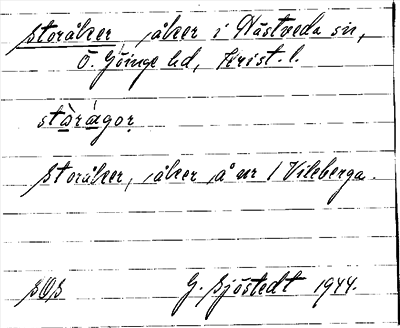 Storåker, åker i Nästveda sn,
Ö. Göinge hd, Krist. l.
storågor
Storåker, åker å nr 1 Vileberga.
SOS
G. Sjöstedt 1944.